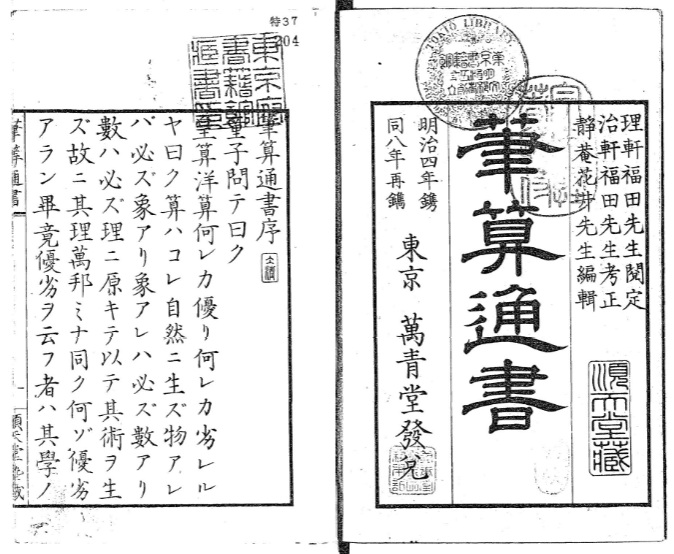 理軒福田先生閲定
治軒福田先生考正
静菴花井先生編輯
筆算通書
明治四年鐫
同八年再鐫
東京 萬青堂發兌
順天堂蔵
TOKIO LIBRARY
特37
304
筆算通書序
童子問テ曰ク
筆算洋算何レカ優リ何レカ劣レル
ヤ曰ク算ハコレ自然ニ生ズ物アレ
バ必ズ象アリ象アレハ必ズ數アリ
數ハ必ズ理ニ原キテ以テ其術ヲ生
ズ故ニ其理萬邦ミナ同ク何ゾ優劣
アラン畢竟優劣ヲ云フ者ハ其學ノ
筆算通書